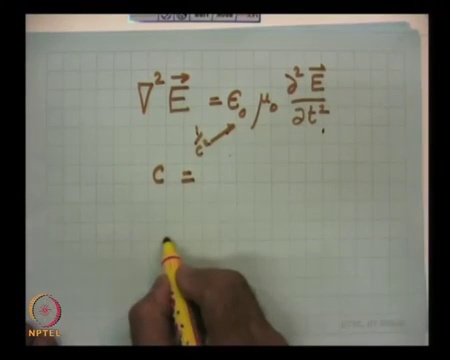 ∇² E⃗ = ε₀ μ₀ ∂² E⃗ / ∂t²
1/c²
c =
NPTEL